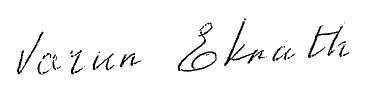 Varun Eknath